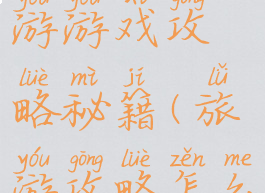 yóu yóu xì gōng
游游戏攻
lüè mì jí lǚ
略秘籍(旅
yóu gōng lüè zěn me
游攻略怎么